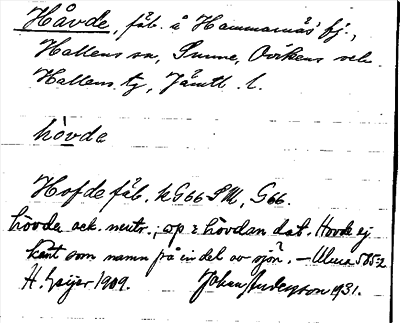 Håvde, fäb. å Hammarnäs' bj.,
Hallens sn, Sunne, Ovikens o
Hallens tg, Jämtl. l.
hövde
Hofde fäb. KG66 SM, G66.
hövde ack. neutr.; op i hövdan dat. Hovde ej
känt som namn på en del av sjön. –
H. Geijer 1909. Johan Anderson 1931.